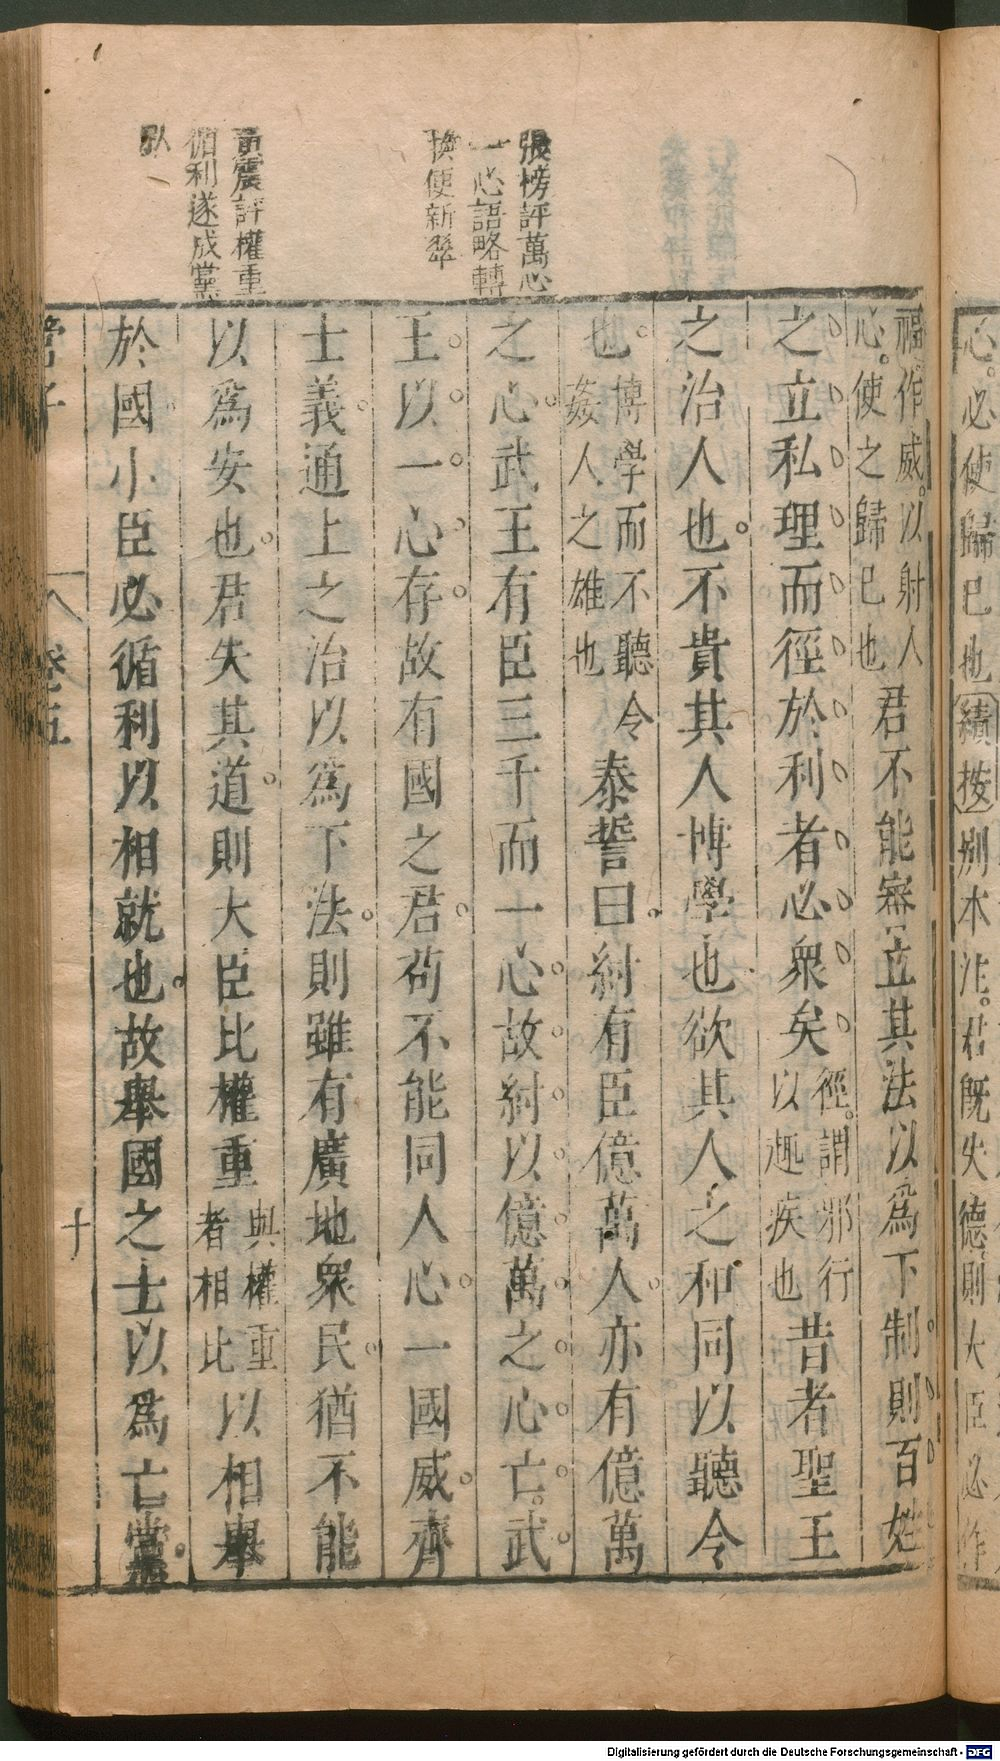 張榜評萬心
一心語略轉
換便新翠
黃震評權重
循利遂成黨
臥
心。必使歸已也績按別本注。君既失德。則大臣必作
福作威。以射人
心。使之歸已也
君不能審立其法以為下制則百姓
之立私理而徑於利者必衆矣
徑。謂邪行
以趣疾也
昔者聖王
之治人也不貴其人博學也欲其人之和同以聽令
也
博學而不聽令
姦人之雄也
泰誓曰紂有臣億萬人亦有億萬
之心武王有臣三千而一心故紂以億萬之心亡武
王以一心存故有國之君苟不能同人心一國威齊
士義通上之治以為下法則雖有廣地衆民猶不能
以為安也君失其道則大臣比權重
與權重
者相比
以相舉
於國小臣必循利以相就也故舉國之士以為亡黨
管子
卷五
十
Digitalisierung gefördert durch die Deutsche Forschungsgemeinschaft - DFG